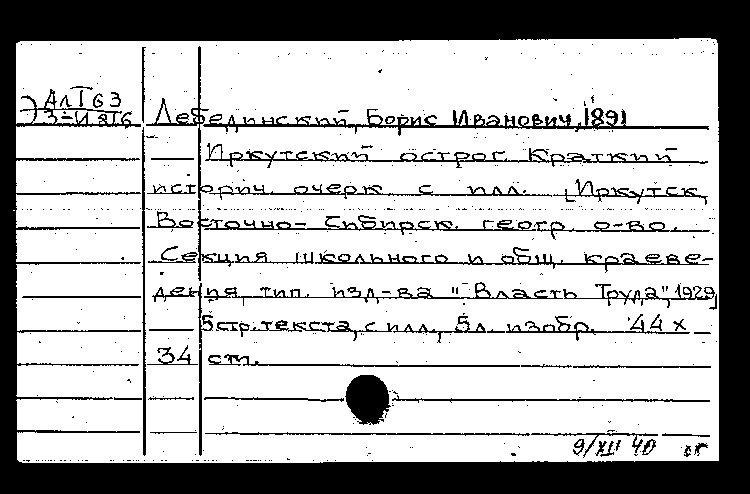 АлТ63
З-И
Лебединский, Борис Иванович, 1891
Иркутский острог. Краткий
историч. очерк с илл. [Иркутск,
Восточно-Сибирск. геогр. о-во.
Секция школьного и общ. краеве-
дения, тип. изд-ва "Власть Труда", 1929]
5 стр. текста, с илл., 5 л. изобр. 44 x
34 cm.
9/XII 40